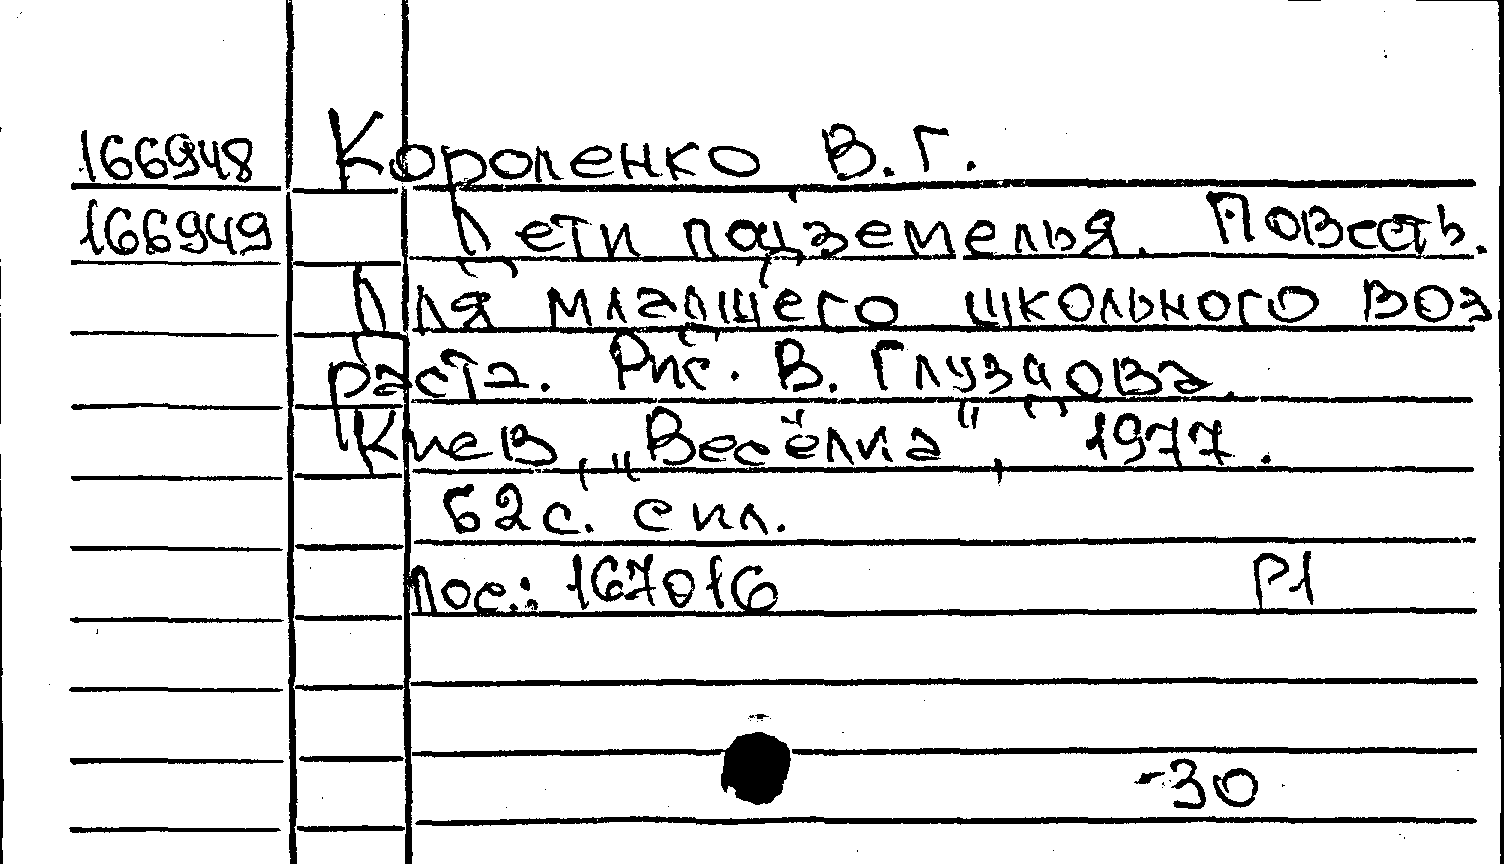 166948 Короленко В.Г.
166949 Дети подземелья. Повесть.
Для младшего школьного воз
раста. Рис. В. Глуздова.
Киев, „Весёлка“, 1977.
62 с. с ил.
Пос.: 167016 Р1
-30